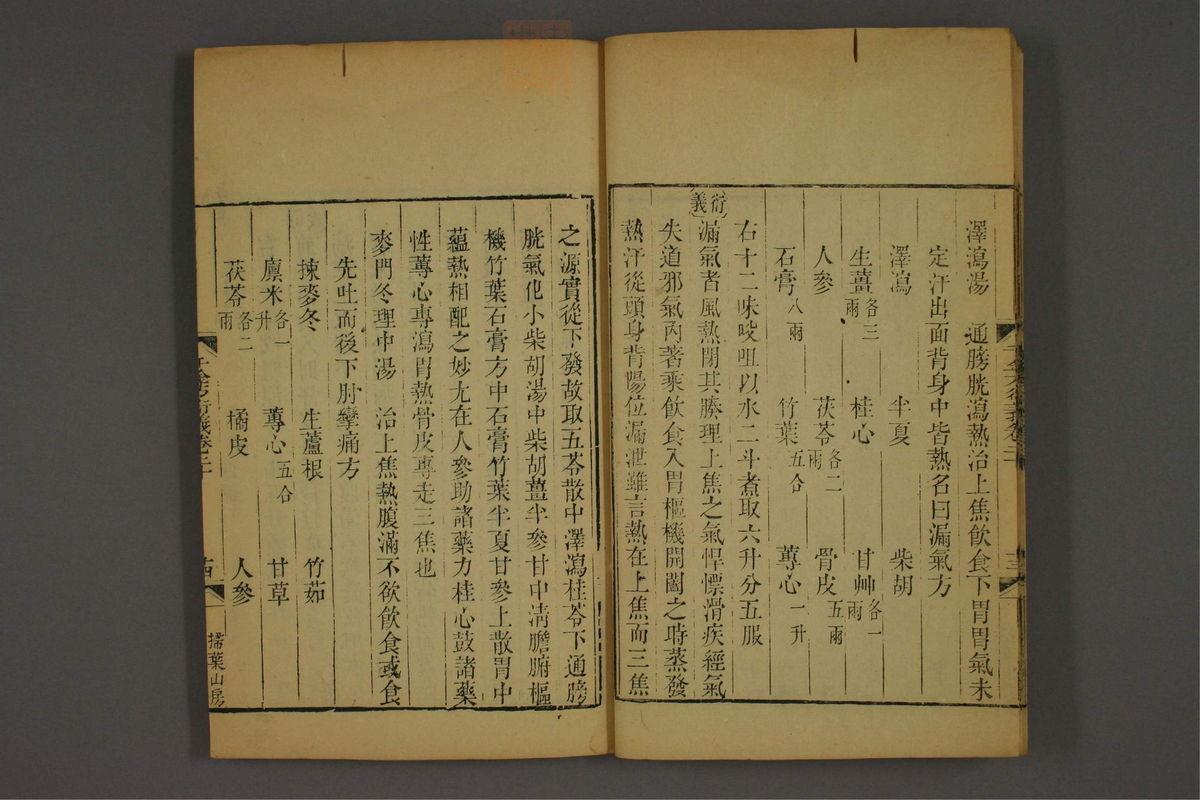 澤瀉湯　通膀胱瀉熱治上焦飲食下胃胃氣未
定汗出面背身中皆熱名曰漏氣方
澤瀉　半夏　柴胡
生薑各三兩　桂心　甘艸各一兩
人參　茯苓各二兩　骨皮五兩
石膏八兩　竹葉五合　蓴心一升
右十二味㕮咀以水二斗煮取六升分五服
衍義
漏氣者風熱閉其腠理上焦之氣悍慓滑疾經氣
失道邪氣內著乘飲食入胃樞機開闔之時蒸發
熱汗從頭身背陽位漏泄雖言熱在上焦而三焦
十三
之源實從下發故取五苓散中澤瀉桂苓下通膀
胱氣化小柴胡湯中柴胡薑半參甘中淸膽腑樞
機竹葉石膏方中石膏竹葉半夏甘參上散胃中
蘊熱相配之妙尤在人參助諸藥力桂心鼓諸藥
性蓴心專瀉胃熱骨皮專走三焦也
麥門冬理中湯　治上焦熱腹滿不欲飲食或食
先吐而後下肘攣痛方
揀麥冬　生蘆根　竹茹
廩米各一升　蓴心五合　甘草
茯苓各二兩　橘皮　人參
千金方衍義卷二十
古
掃葉山房